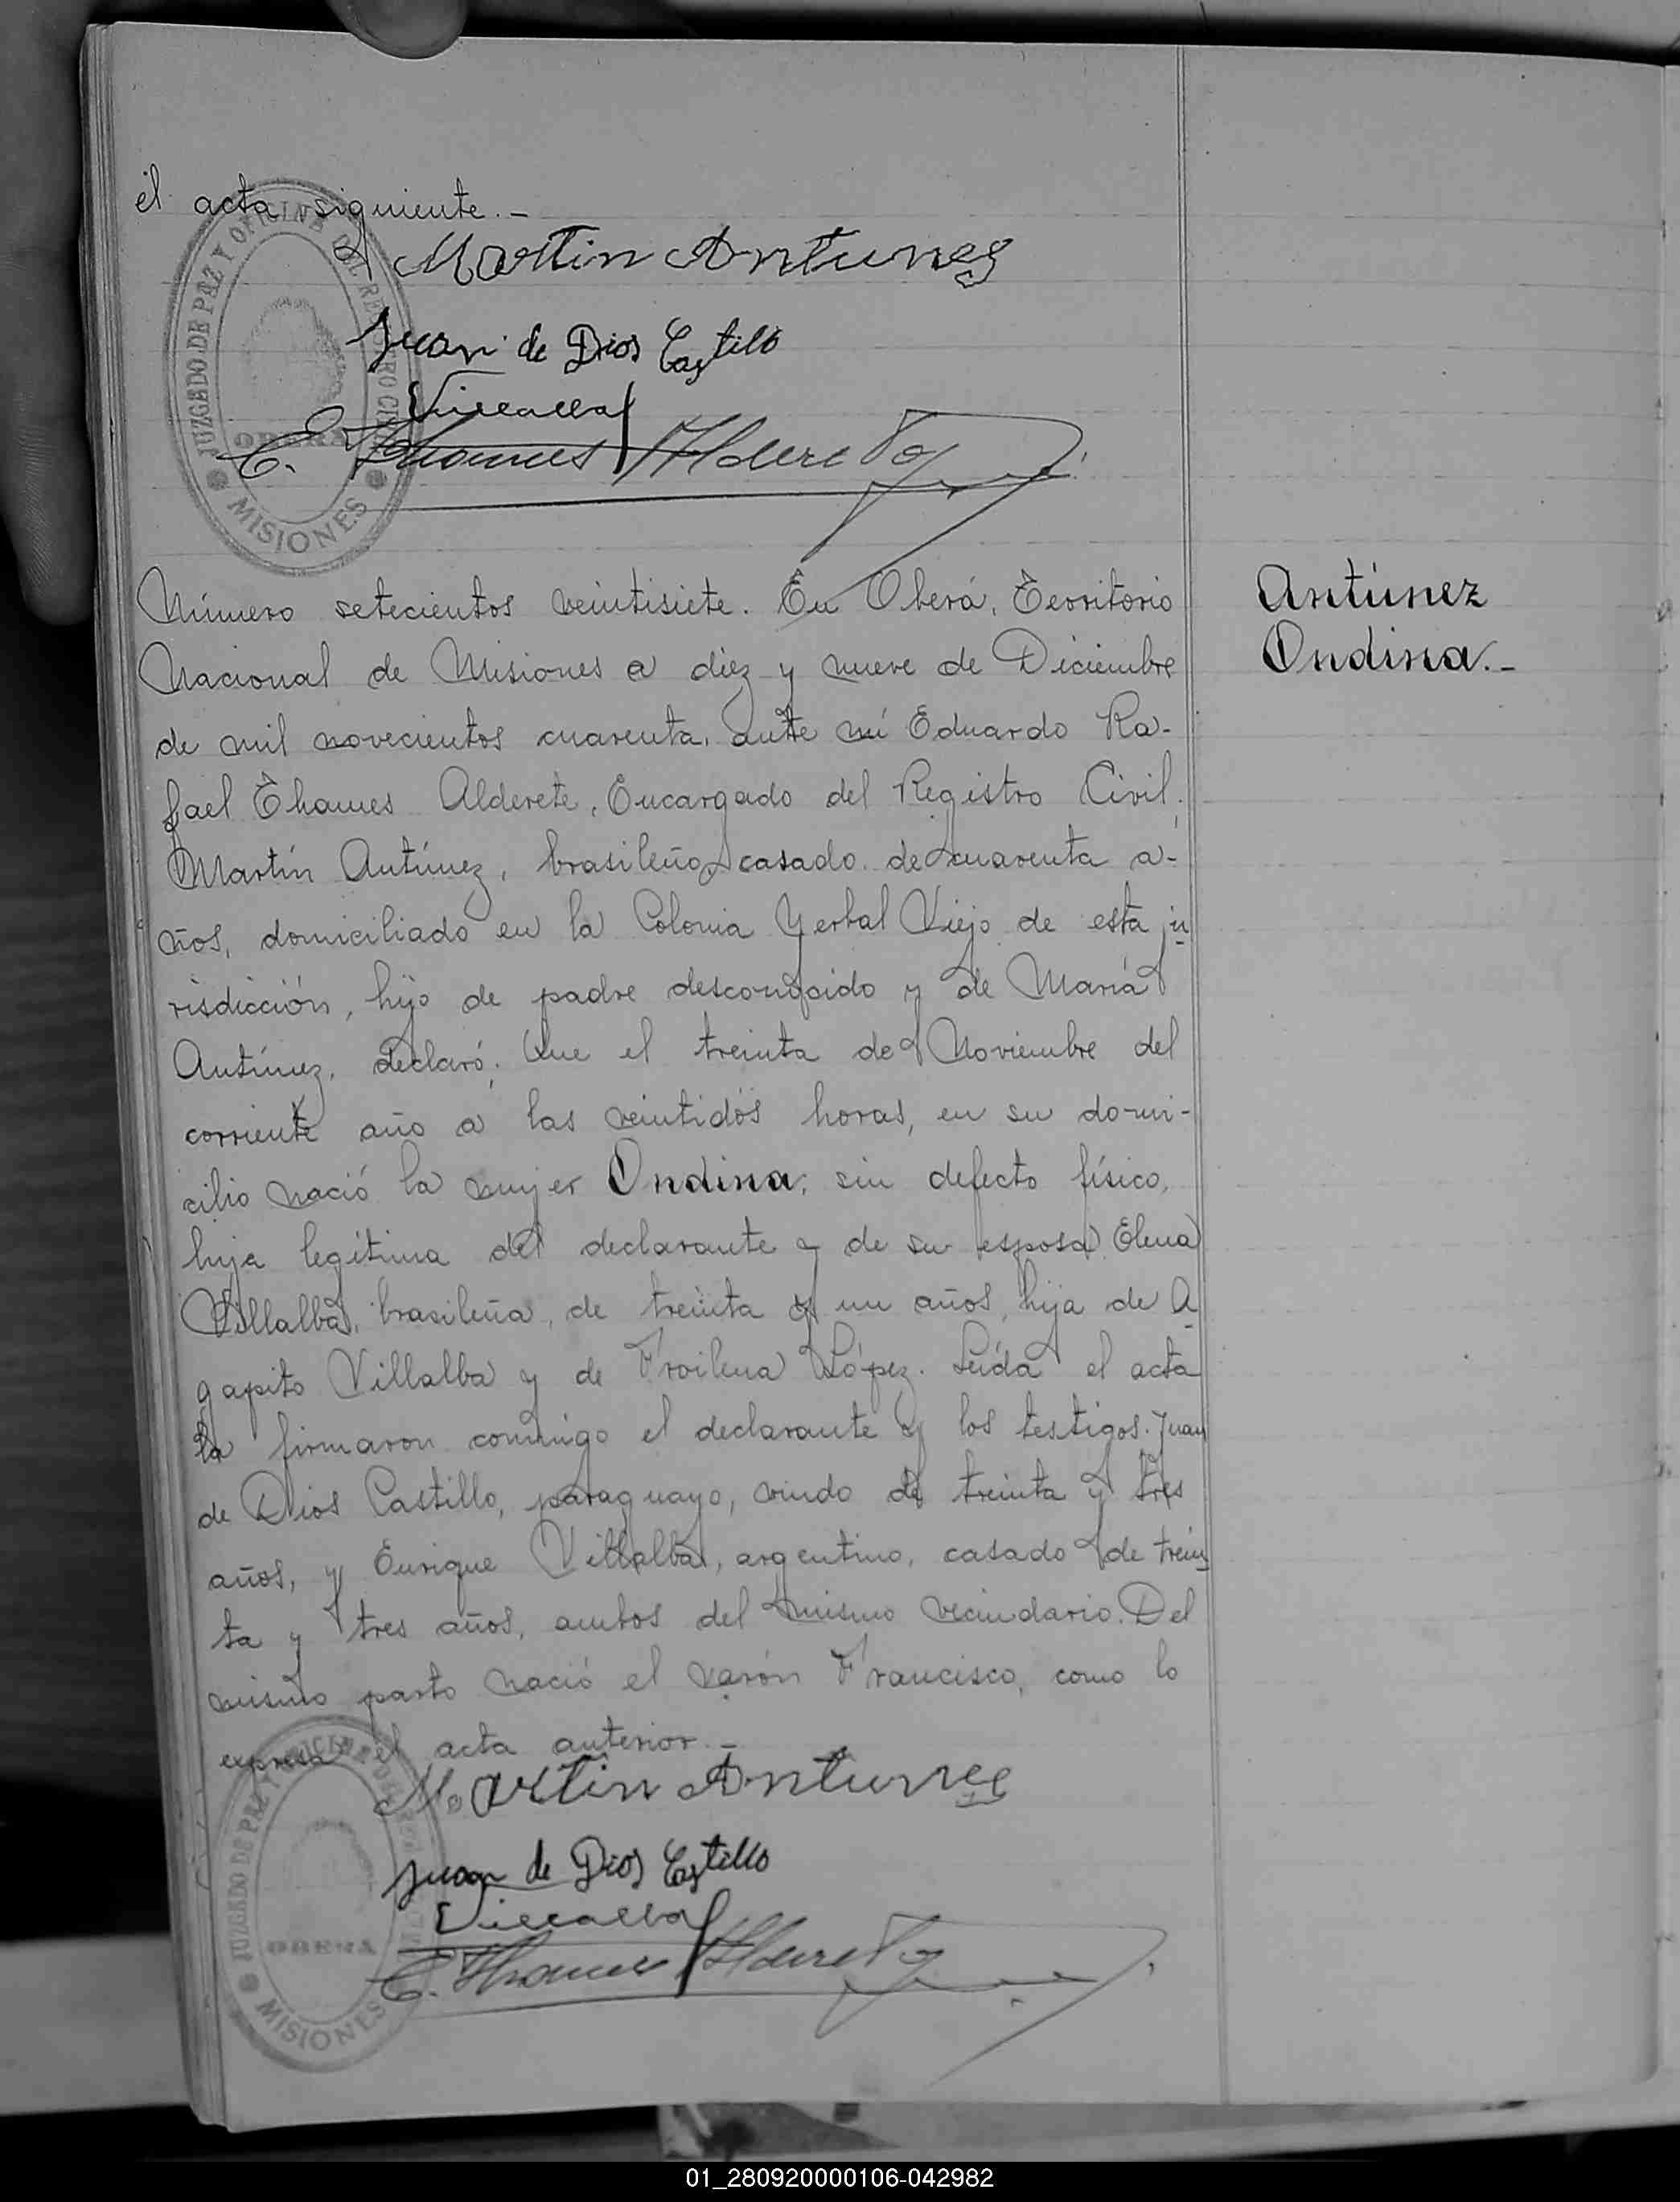 el acta siguiente.-
Martin Antunes
Juan de Dios Castillo
Villalba
E. Thames Alderete
Número setecientos veintisiete. En Oberá, Territorio
Antúnez
Nacional de Misiones a diez y nueve de Diciembre
Ondina.-
de mil novecientos cuarenta, ante mí Eduardo Ra-
fael Thames Alderete, Encargado del Registro Civil,
Martín Antúnez, brasileño, casado de cuarenta a-
ños, domiciliado en la Colonia Yerbal Viejo de esta ju
risdicción, hijo de padre desconocido y de María
Antúnez, declaró: Que el treinta de Noviembre del
corriente año a las veintidós horas, en su domi-
cilio nació la mujer Ondina; sin defecto físico,
hija legítima del declarante y de su esposa Elena
Villalba, brasileña, de treinta y un años, hija de A
gapito Villalba y de Froilena López. Leída el acta
la firmaron conmigo el declarante y los testigos. Juan
de Dios Castillo, paraguayo, viudo de treinta y tres
años, y Enrique Villalba, argentino, casado de trein
ta y tres años, ambos del mismo vecindario. Del
mismo parto nació el varón Francisco, como lo
expresa el acta anterior.-
Martin Antunes
Juan de Dios Castillo
Villalba
E. Thames Alderete
JUZGADO DE PAZ Y OFICINA DEL REGISTRO CIVIL
OBERA
MISIONES
JUZGADO DE PAZ Y OFICINA DEL
OBERA
MISIONES
01_280920000106-042982